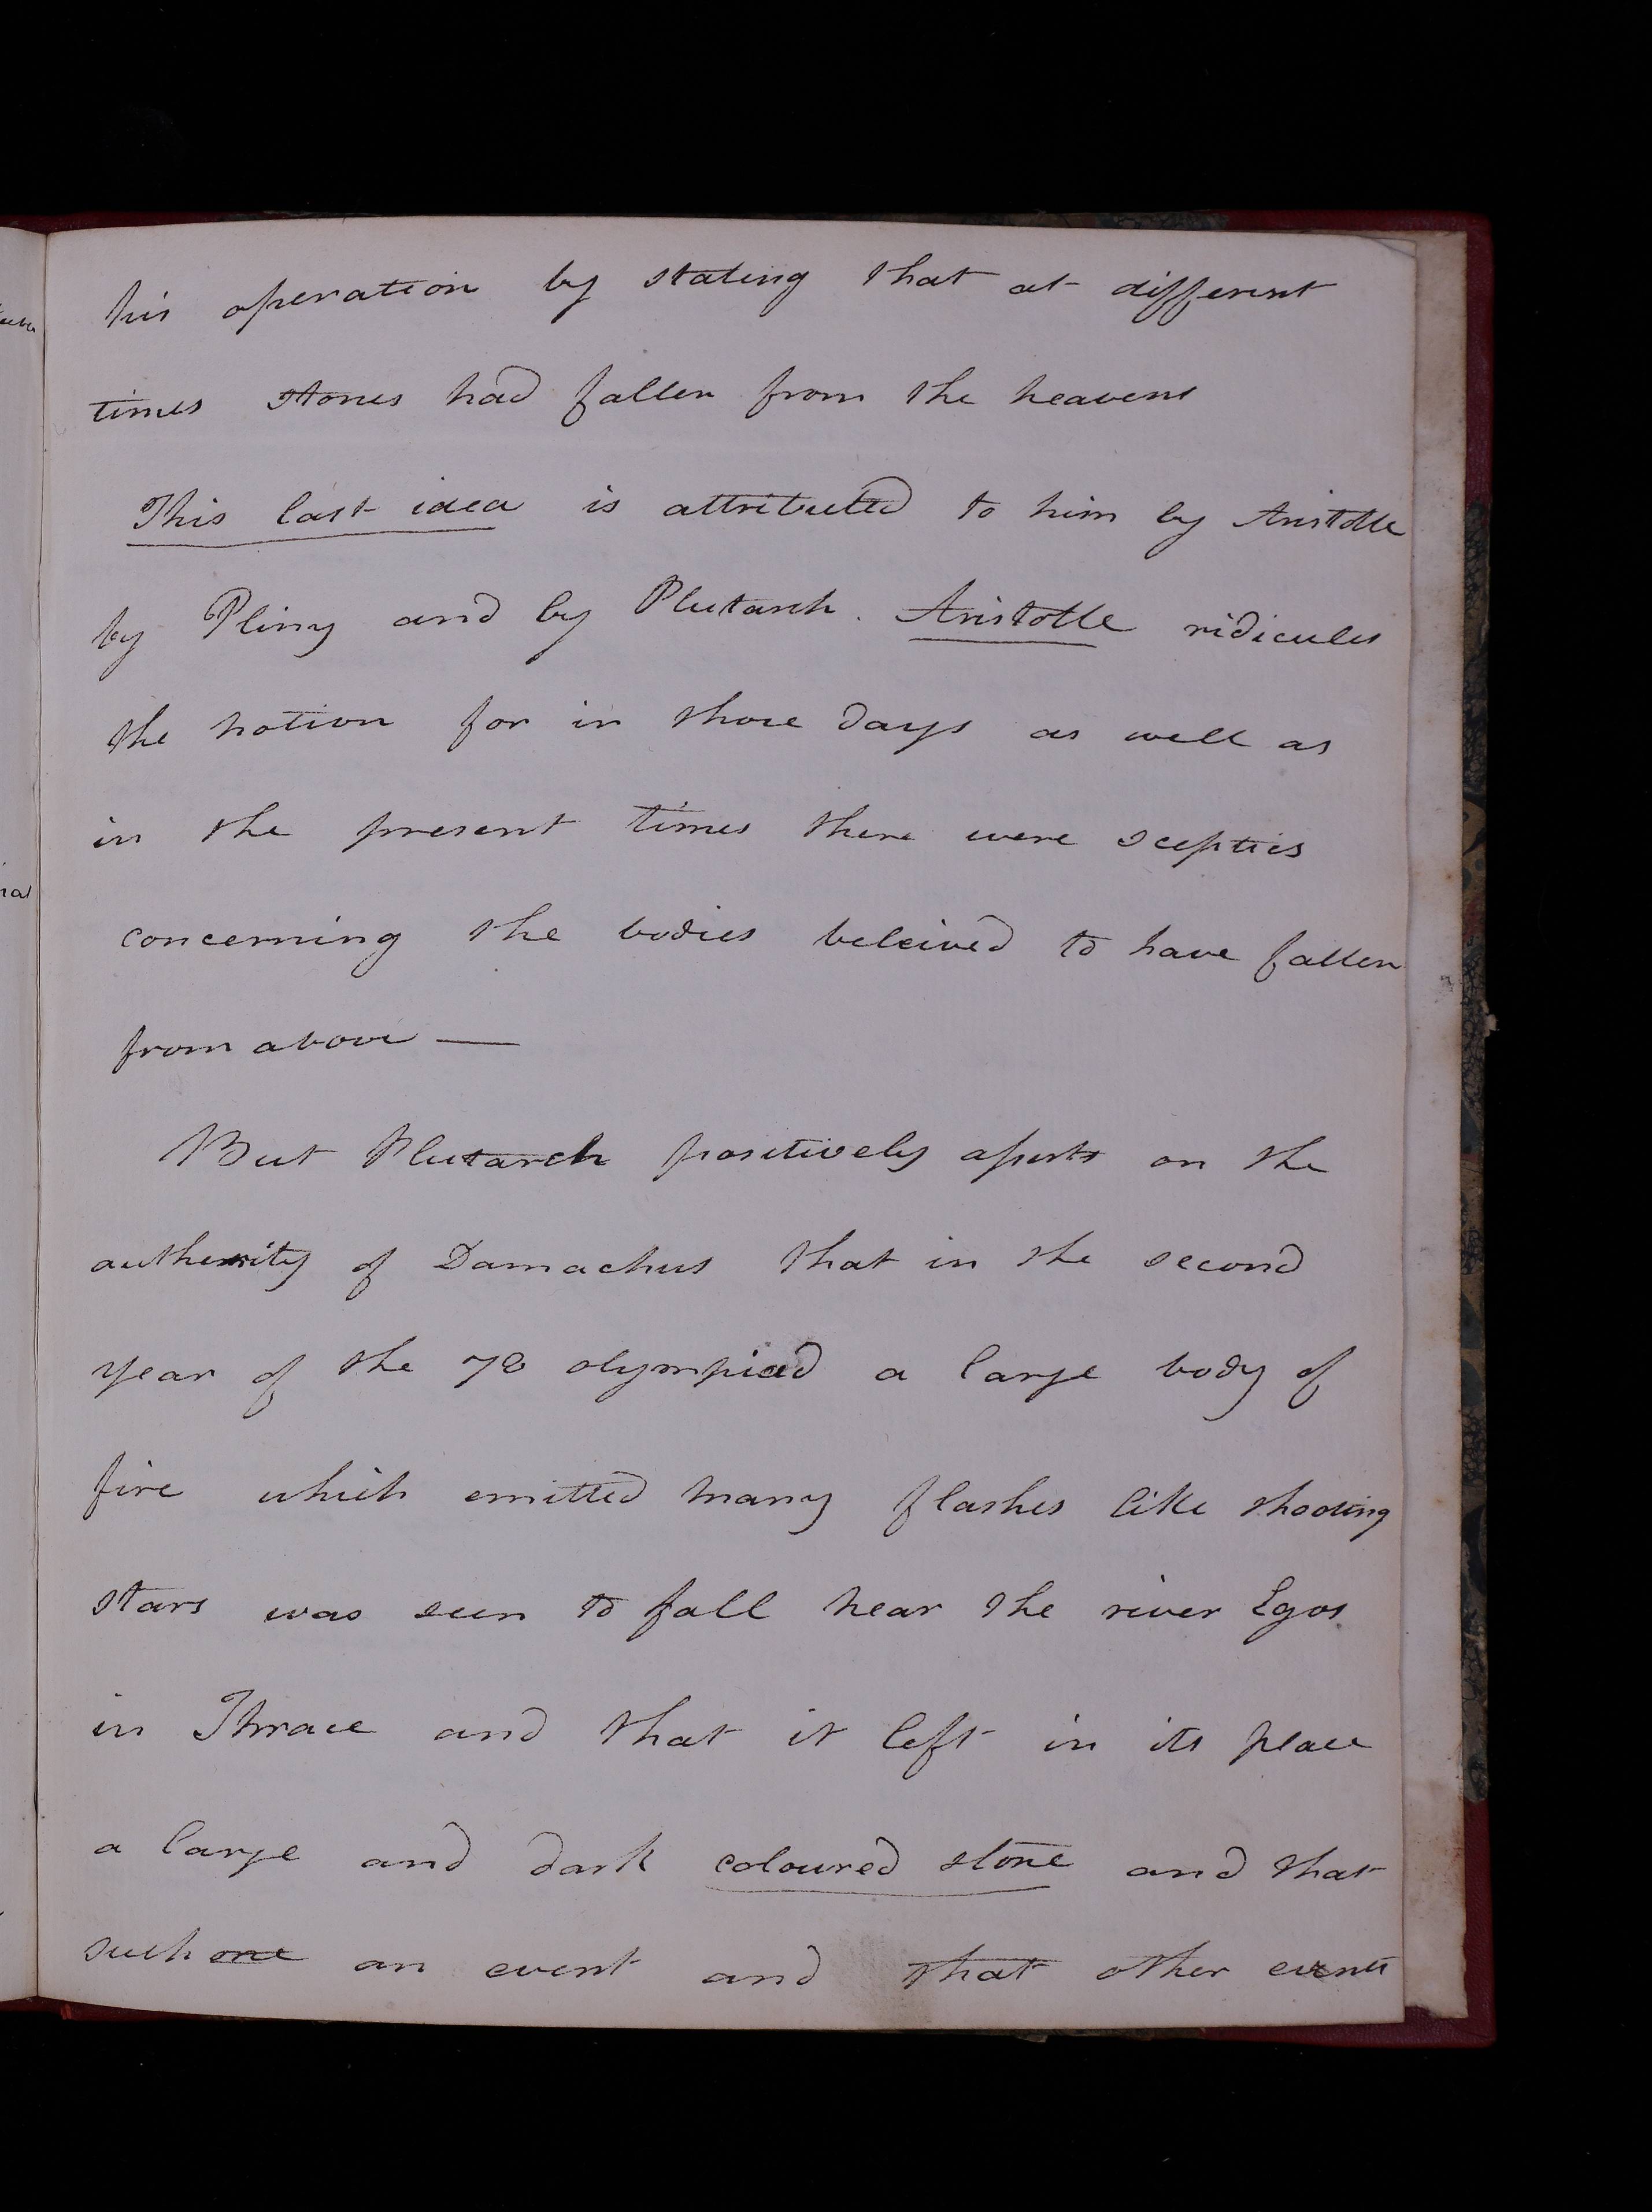 his operation by stating that at different
times stones had fallen from the heavens
This last idea is attributed to him by Aristotle
by Pliny and by Plutarch. Aristotle ridicules
the notion for in those days as well as
in the present times there were sceptics
concerning the bodies beleived to have fallen
from above —
But Plutarch positively asserts on the
authority of Damachus that in the second
year of the 78 olympiad a large body of
fire which emitted many flashes like shooting
stars was seen to fall near the river Egos
in Thrace and that it left in its place
a large and dark coloured stone and that
such one an event and that other events